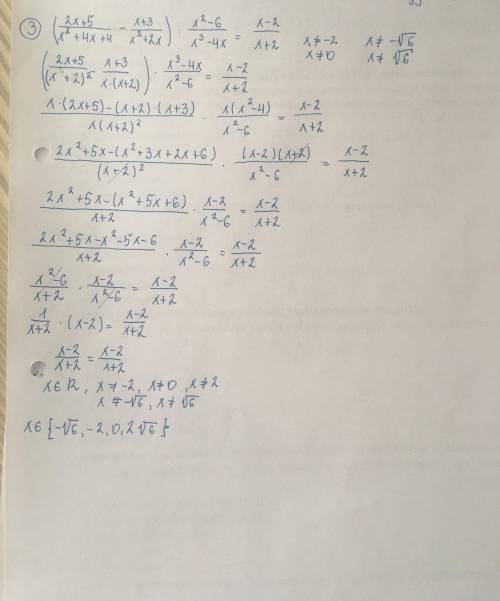 ③ ((2x+5)/(x²+4x+4) - (x+3)/(x²+2x)) : (x²-6)/(x³-4x) = (x-2)/(x+2)    x≠-2    x≠-√6
x≠0    x≠√6
((2x+5)/(x+2)² - (x+3)/(x·(x+2))) · (x³-4x)/(x²-6) = (x-2)/(x+2)
(x·(2x+5)-(x+2)·(x+3))/(x(x+2)²) · (x(x²-4))/(x²-6) = (x-2)/(x+2)
(2x²+5x-(x²+3x+2x+6))/(x+2)² · ((x-2)(x+2))/(x²-6) = (x-2)/(x+2)
(2x²+5x-(x²+5x+6))/(x+2) · (x-2)/(x²-6) = (x-2)/(x+2)
(2x²+5x-x²-5x-6)/(x+2) · (x-2)/(x²-6) = (x-2)/(x+2)
(x²-6)/(x+2) · (x-2)/(x²-6) = (x-2)/(x+2)
1/(x+2) · (x-2) = (x-2)/(x+2)
(x-2)/(x+2) = (x-2)/(x+2)
x∈R, x≠-2, x≠0, x≠2
x≠-√6, x≠√6
x∈{-√6,-2,0,2√6}